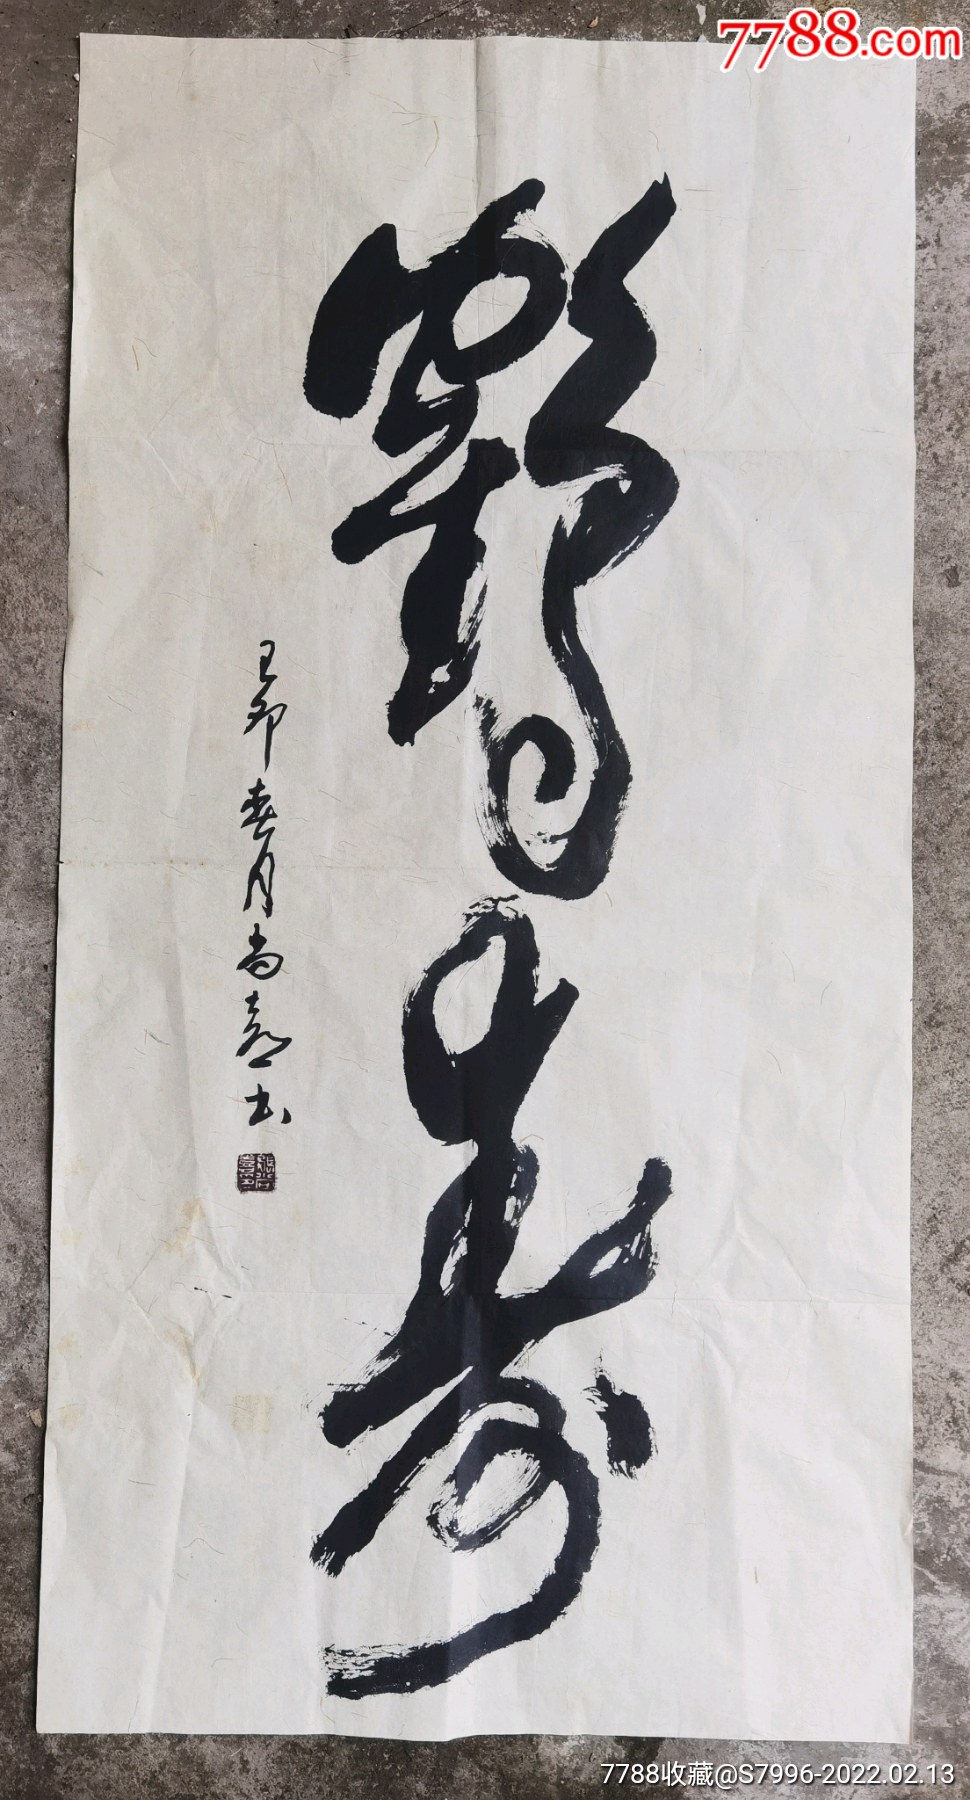 7788.com
鹤寿
己卯春月尚意书
7788收藏@S7996-2022.02.13